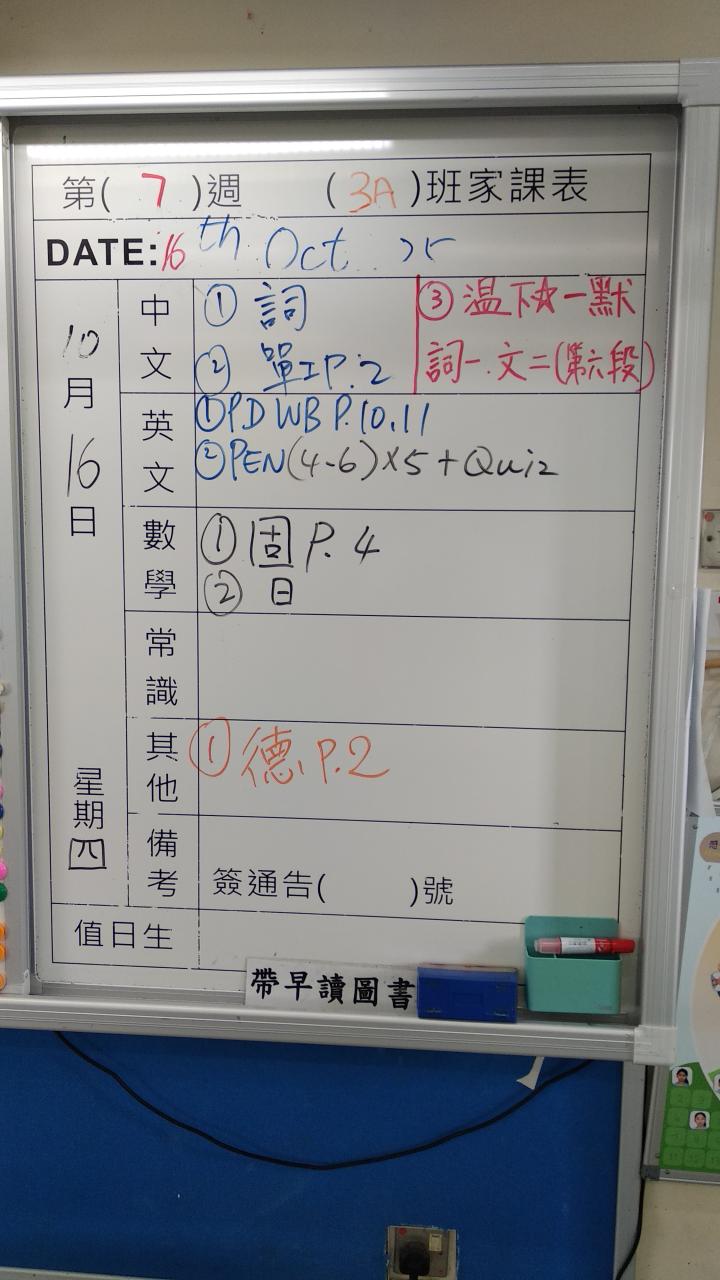 第( 7 )週 ( 3A )班家課表
DATE: 16th Oct 25
10月16日 星期四
中文
① 詞
② 單工P.2
③ 温下 一默
詞一.文二(第六段)
英文
① PD WB P.10,11
② PEN(4-6)×5+Quiz
數學
① 固 P.4
② 日
常識
其他
① 德.P.2
備考
簽通告( )號
值日生
帶早讀圖書